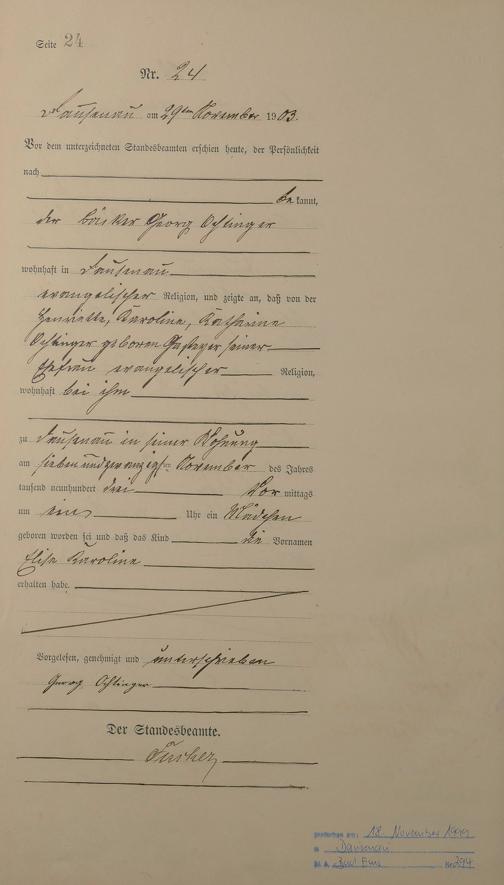 Seite 24
Nr. 24
Dausenau am 29ten November 1903.
Vor dem unterzeichneten Standesbeamten erschien heute, der Persönlichkeit
nach
bekannt,
der Bäcker Georg Oehlinger
wohnhaft in Dausenau
evangelischer Religion, und zeigte an, daß von der
Henriette, Karoline, Katharine
Oehlinger geboren seiner
Ehefrau evangelischer Religion,
wohnhaft bei ihm
zu Dausenau in seiner Wohnung
am siebenundzwanzigsten November des Jahres
tausend neunhundert drei Vormittags
um eins Uhr ein Mädchen
geboren worden sei und daß das Kind die Vornamen
Elise Karoline
erhalten habe.
Vorgelesen, genehmigt und unterschrieben
Georg Oehlinger
Der Standesbeamte.
gestorben am: 18. November 1999
in Dausenau
Bad Ems Nr. 294